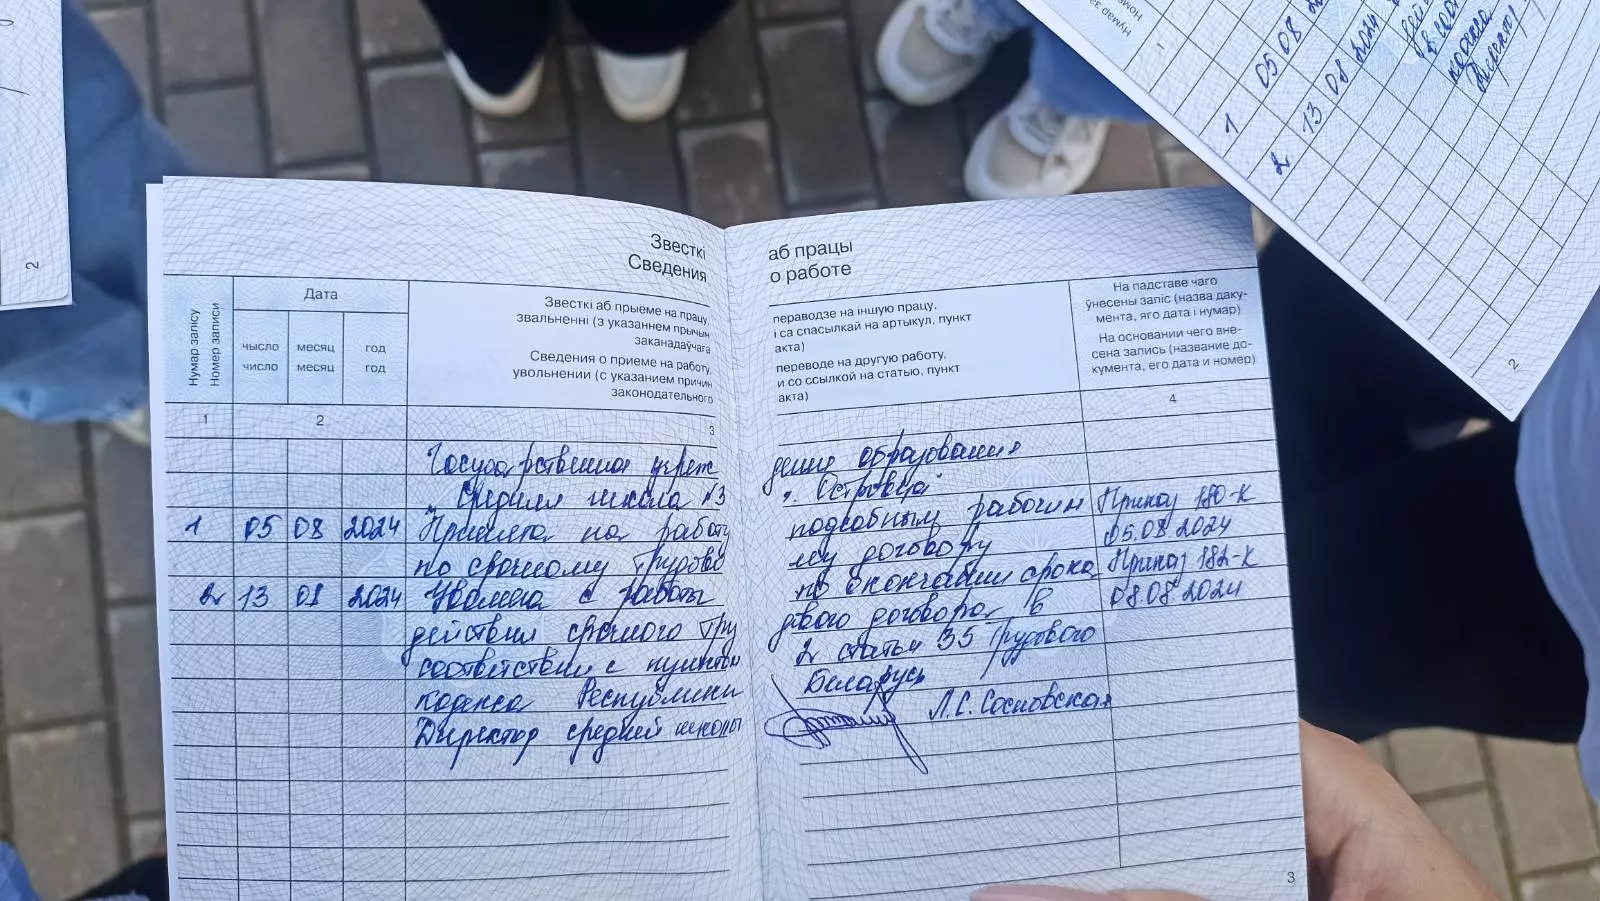 Звесткі аб працы
Сведения о работе
Нумар запісу
Номер записи
Дата
чысло месяц год
число месяц год
Звесткі аб прыёме на працу, пераводзе на іншую працу,
звальненні (з указаннем прычын і са спасылкай на артыкул, пункт
заканадаўчага акта)
Сведения о приеме на работу, переводе на другую работу,
увольнении (с указанием причин и со ссылкой на статью, пункт
законодательного акта)
На падставе чаго
ўнесены запіс (назва даку-
мента, яго дата і нумар)
На основании чего вне-
сена запись (название до-
кумента, его дата и номер)
1 2 3 4
Государственное учреждение образования
"Средняя школа №3 г. Островца"
1 05 08 2024 Принята на работу подсобным рабочим Приказ 180-к
по срочному трудовому договору 05.08.2024
2 13 08 2024 Уволена с работы по окончании срока Приказ 182-к
действия срочного трудового договора в 08.08.2024
соответствии с пунктом 2 статьи 35 Трудового
кодекса Республики Беларусь
Директор средней школы Л.С. Сосновская
3
2
Нумар за
Номе
1
1 05 08
2 13 08 2024
кодекса
Директор
2